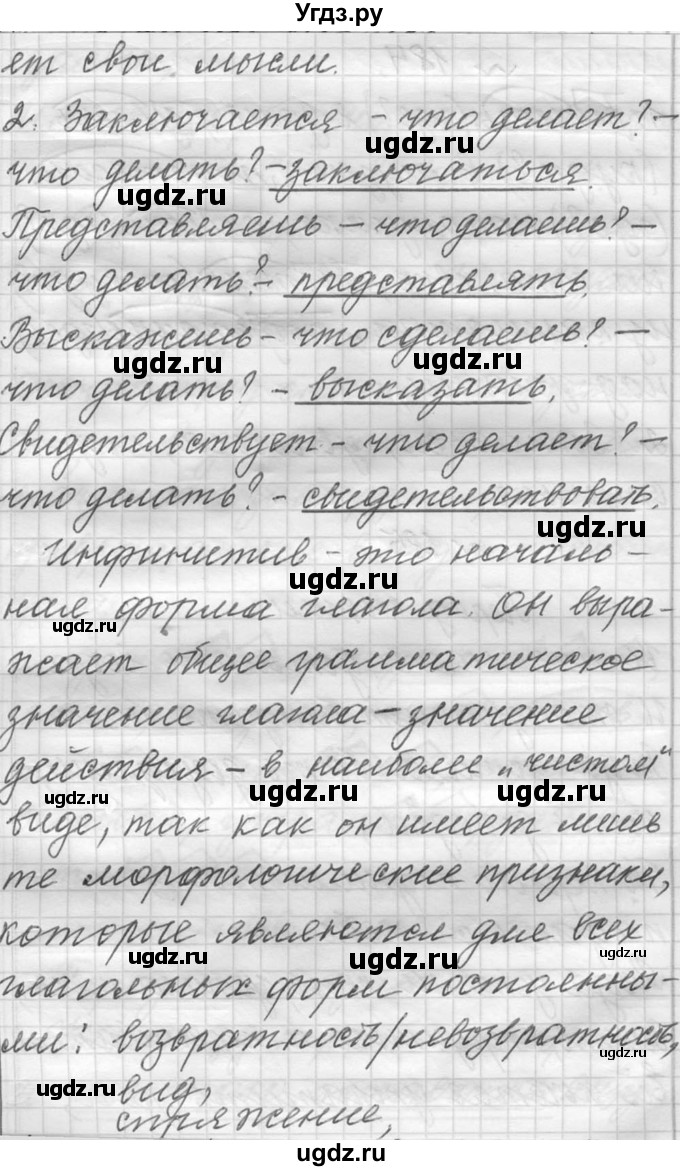 Угдз.ру
ет свои мысли.
2. Заключается - что делает? -
ugdz.ru
что делать? - заключаться.
ugdz.ru
Представляешь - что делаешь? -
ugdz.ru
что делать? - представлять.
ugdz.ru
Выскажешь - что сделаешь? -
ugdz.ru
ugdz.ru
что делать? - высказать.
Свидетельствует - что делает? -
ugdz.ru
что делать? - свидетельствовать.
ugdz.ru
Инфинитив - это началь-
ugdz.ru
ная форма глагола. Он выра-
ugdz.ru
жает общее грамматическое
значение глагола - значение
действия - в наиболее „чистом“
ugdz.ru
ugdz.ru
ugdz.ru
виде, так как он имеет лишь
те морфологические признаки,
которые являются для всех
ugdz.ru
ugdz.ru
ugdz.ru
глагольных форм постоянны-
ми: возвратность/невозвратность,
ugdz.ru
ugdz.ru
вид,
спряжение,
ugdz.ru